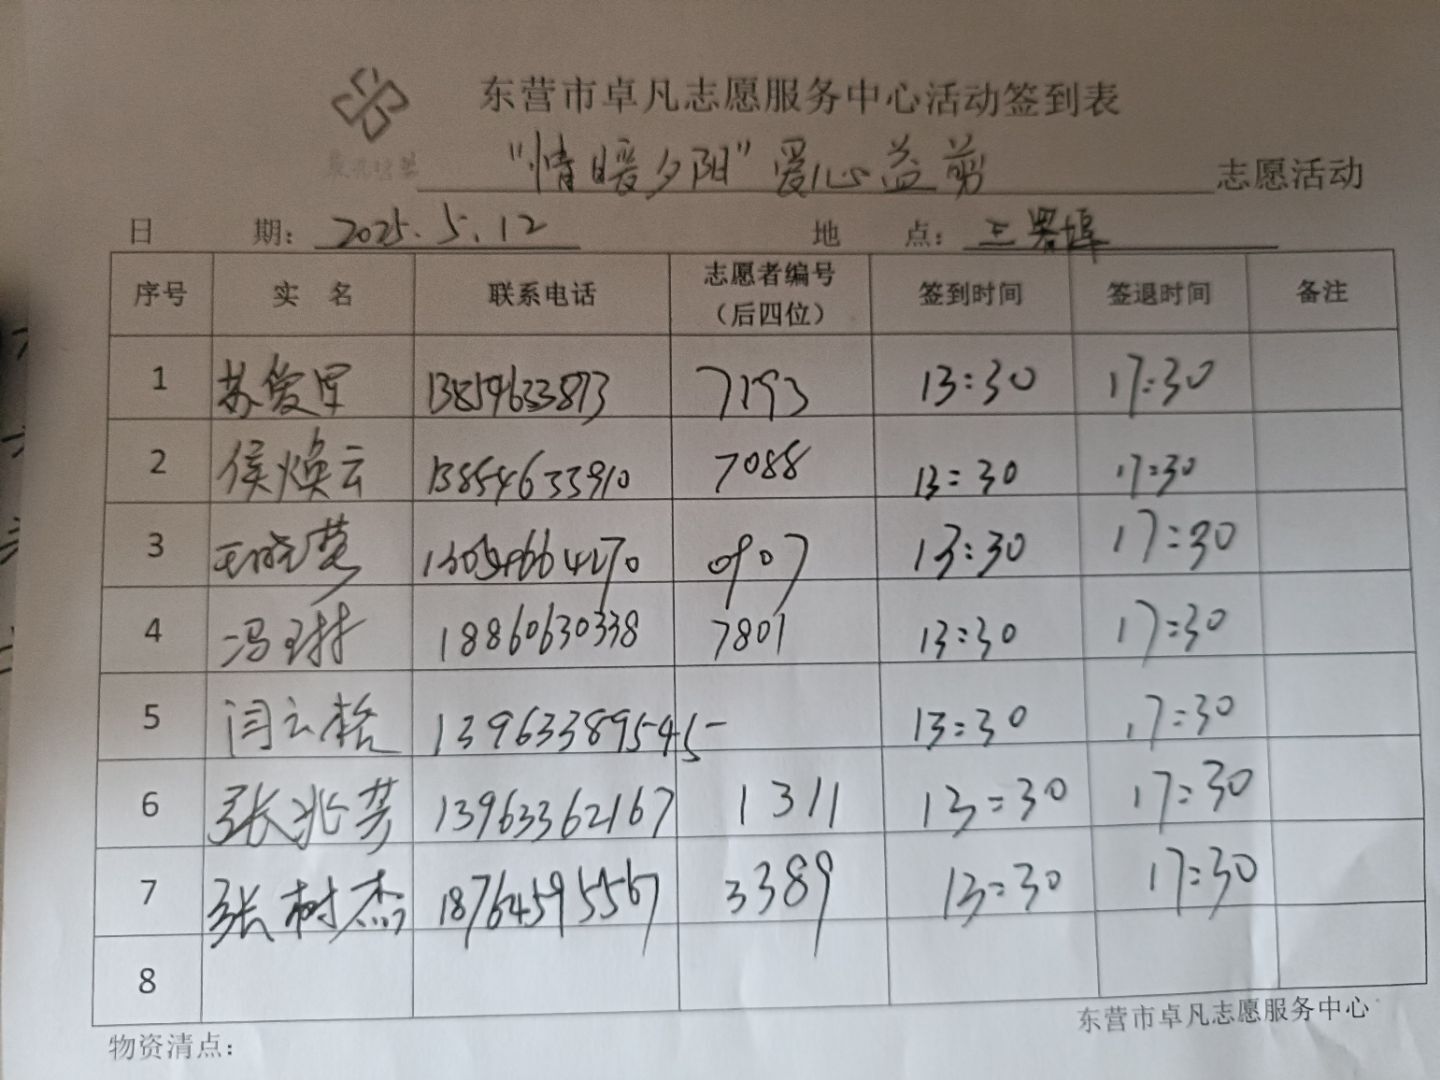 东营市卓凡志愿服务中心活动签到表
"情暖夕阳"爱心益剪 志愿活动
日 期：2025.5.12 地 点：三里埠
序号 实 名 联系电话 志愿者编号（后四位） 签到时间 签退时间 备注
1 苏爱军 13854633873 7193 13:30 17:30
2 侯焕云 13854633910 7088 13:30 17:30
3 王晓莺 13054664270 0907 13:30 17:30
4 冯琳 18860630338 7801 13:30 17:30
5 闫云格 13963389545 13:30 17:30
6 张兆芳 13963362167 1311 13:30 17:30
7 张树杰 18764595567 3389 13:30 17:30
8
东营市卓凡志愿服务中心
物资清点：